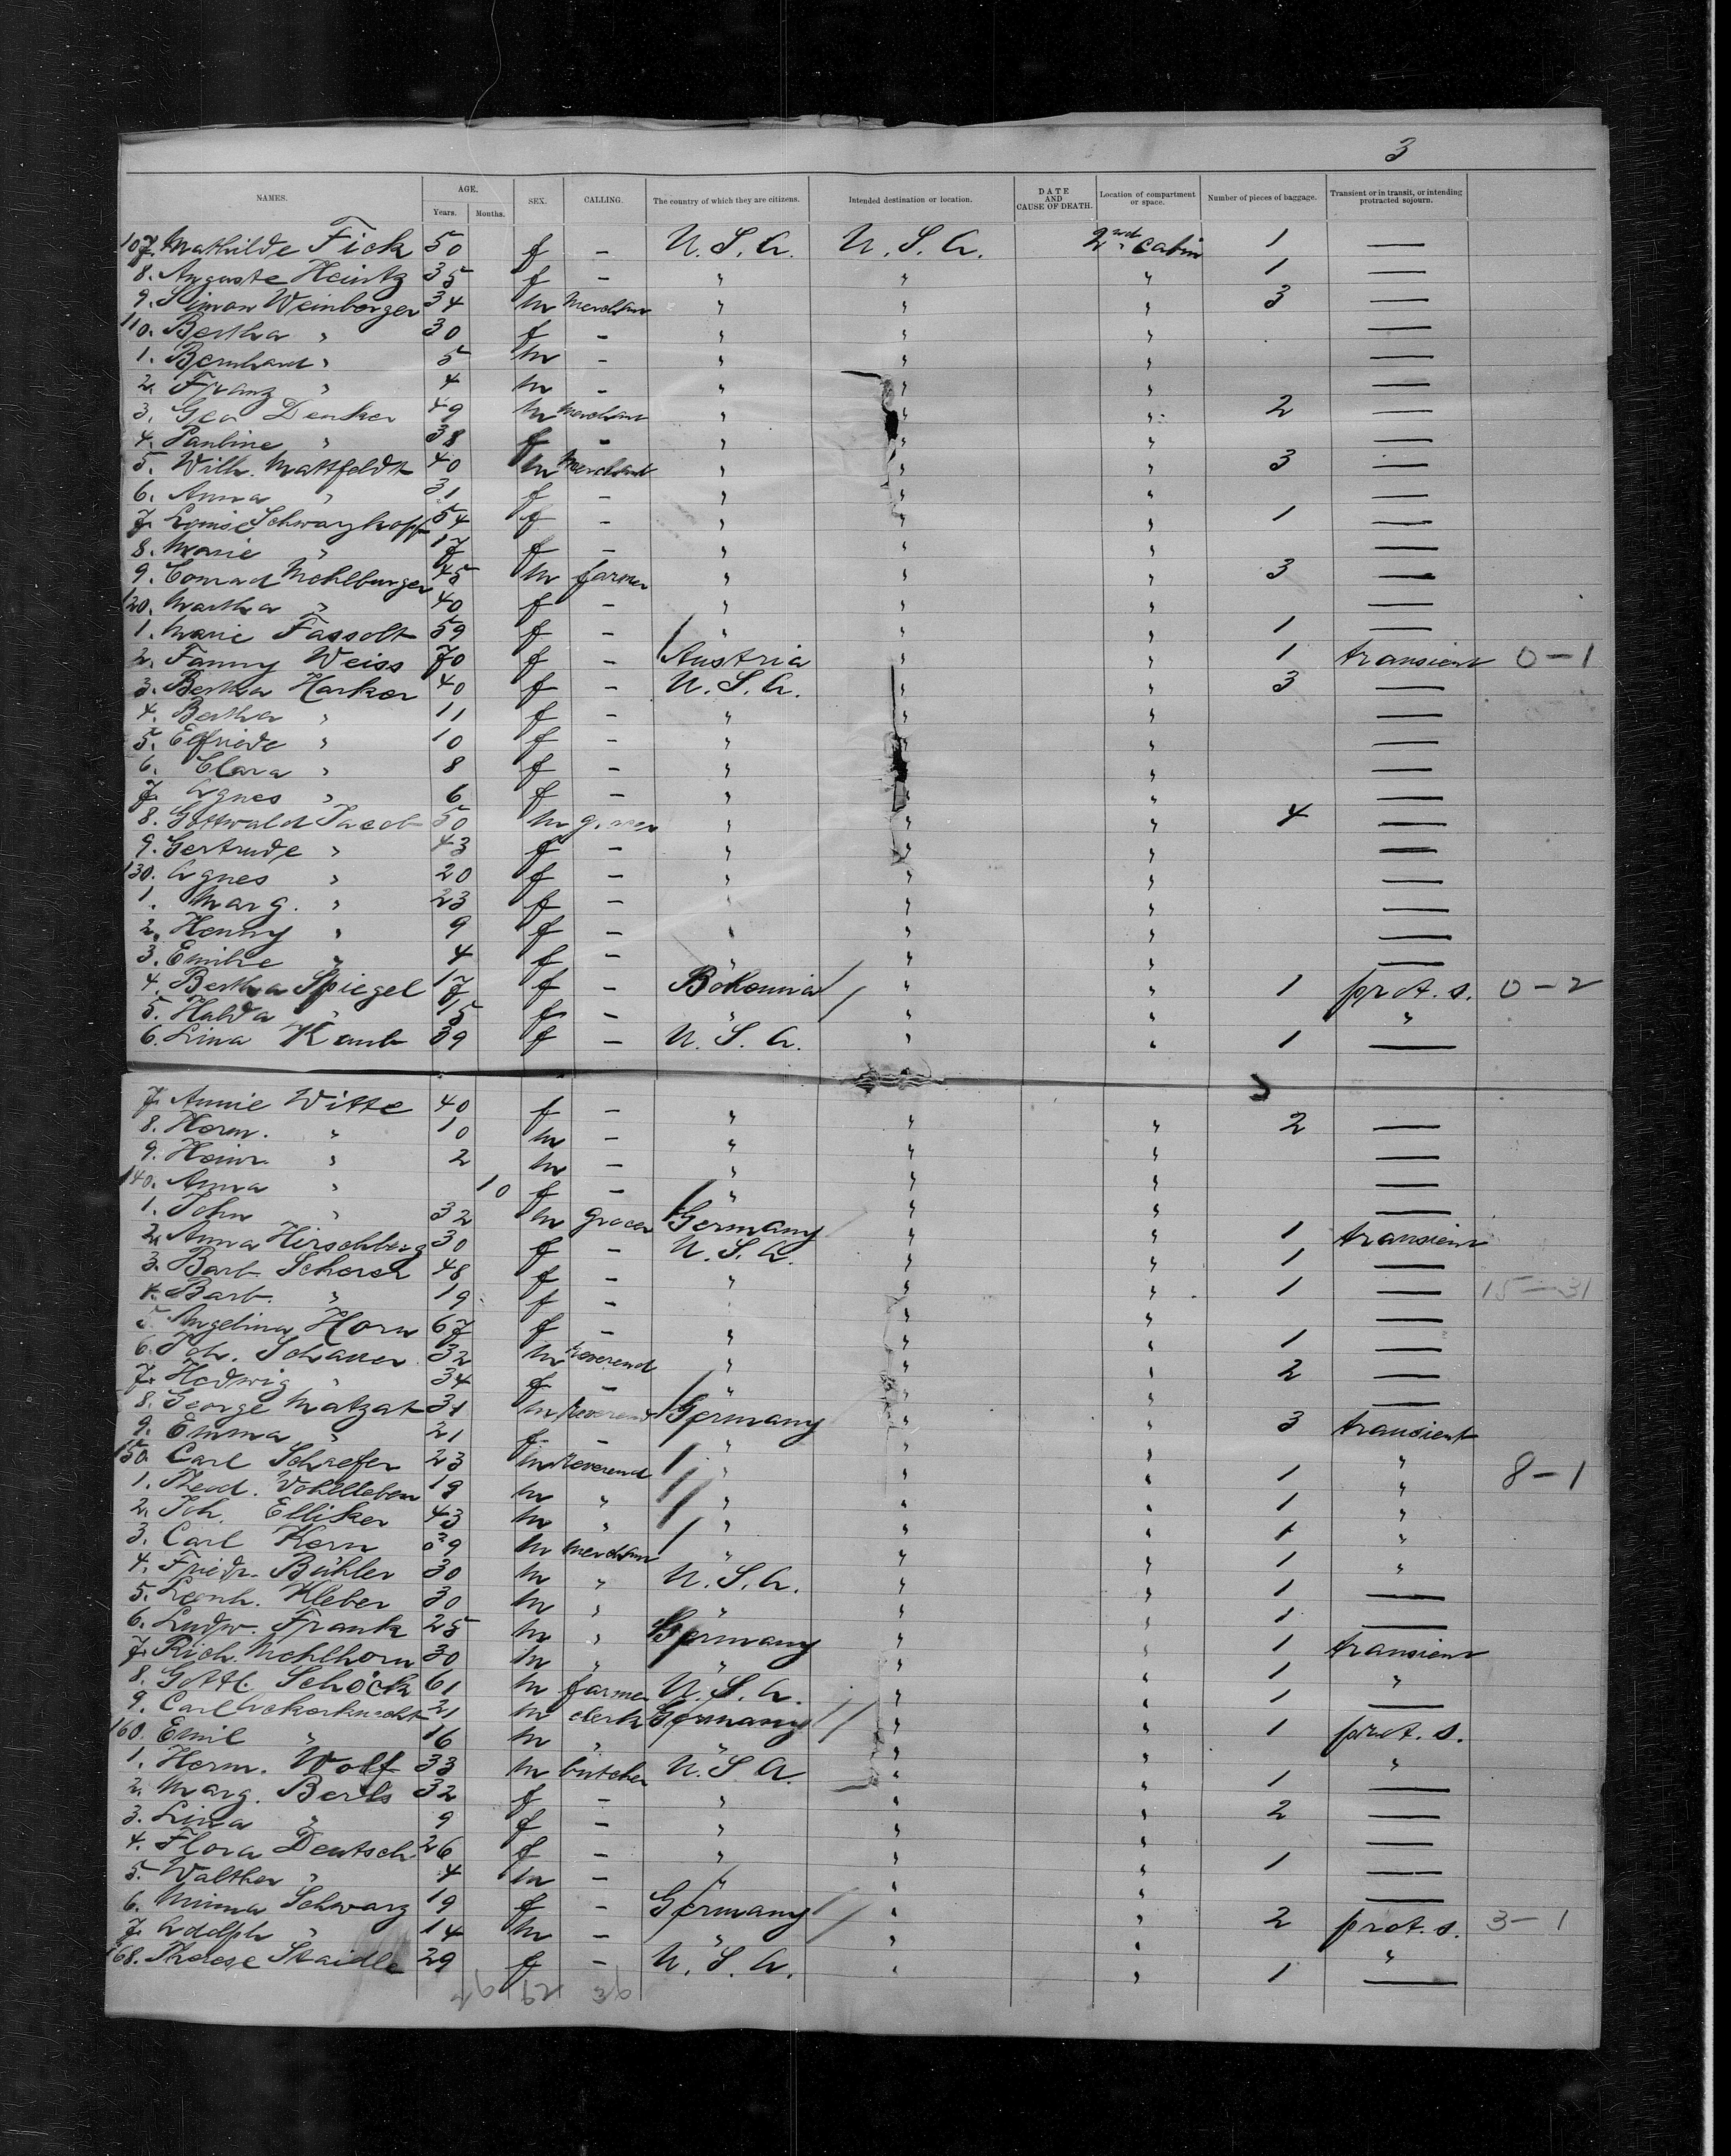 3
NAMES. AGE. Years. Months. SEX. CALLING. The country of which they are citizens. Intended destination or location. DATE AND CAUSE OF DEATH. Location of compartment or space. Number of pieces of baggage. Transient or in transit, or intending protracted sojourn.
107. Mathilde Fick 50 f — U. S. A. U. S. A. 2nd cabin 1 —
8. Auguste Heintz 35 f — " " " 1 —
9. Simon Weinberger 34 m Merchant " " " 3 —
110. Bertha " 30 f — " " " —
1. Bernhard " 5 m — " " " —
2. Franz " 4 m — " " " —
3. Geo Denker 49 m Merchant " " " 2 —
4. Pauline " 38 f — " " " —
5. Wilh. Mattfeldt 40 m Merchant " " " 3 —
6. Anna " 31 f — " " " —
7. Louise Schwarzkopf 54 f — " " " 1 —
8. Marie " 17 f — " " " —
9. Conrad Mehlburger 45 m farmer " " " 3 —
120. Martha " 40 f — " " " —
1. Marie Fassolt 59 f — " " " 1 —
2. Fanny Weiss 70 f — Austria " " 1 transient 0-1
3. Bertha Harker 40 f — U. S. A. " " 3 —
4. Bertha " 11 f — " " " —
5. Elfriede " 10 f — " " " —
6. Clara " 8 f — " " " —
7. Agnes " 6 f — " " " —
8. Gottwald Jacob 50 m " " " 4 —
9. Gertrude " 43 f — " " " —
130. Agnes " 20 f — " " " —
1. Marg. " 23 f — " " " —
2. Henny " 9 f — " " " —
3. Emilie " 4 f — " " " —
4. Bertha Spiegel 17 f — Bohemia " " 1 prot. s. 0-2
5. Hulda " 15 f — " " " "
6. Lina Kaub 39 f — U. S. A. " " 1 —
7. Annie Witte 40 f — " " " 2 —
8. Herm. " 10 m — " " " —
9. Heinr. " 2 m — " " " —
140. Anna " 10 f — " " " —
1. John " 32 m grocer Germany " " 1 transient
2. Anna Hirschberg 30 f — U. S. A. " " 1 —
3. Barb. Scherer 48 f — " " " 1 — 15-31
4. Barb. " 19 f — " " —
5. Angelina Horn 67 f — " " " 1 —
6. Joh. Schauer 32 m Reverend " " " 2 —
7. Hedwig " 34 f — " " " —
8. George Matzat 31 m Reverend Germany " " 3 transient
9. Emma " 21 f — " " " "
150. Carl Schaefer 23 m Reverend " " " 1 " 8-1
1. Theod. Wohlleben 19 m " " " " 1 "
2. Joh. Elliker 43 m " " " " 1 "
3. Carl Kern 39 m Merchant " " " 1 "
4. Friedr. Bühler 30 m " U. S. A. " " 1 —
5. Leonh. Kleber 30 m " " " " 1 —
6. Ludw. Frank 25 m " Germany " " 1 transient
7. Rich. Mehlhorn 30 m " " " " 1 "
8. Gottl. Schöck 61 m farmer U. S. A. " " 1 —
9. Carl Ackerknecht 21 m clerk Germany " " 1 prot. s.
160. Emil " 16 m " " " " "
1. Herm. Wolf 33 m butcher U. S. A. " " 1 —
2. Marg. Berls 32 f — " " " 2 —
3. Lina " 9 f — " " " —
4. Flora Deutsch 26 f — " " " 1 —
5. Walther " 4 m — " " " —
6. Minna Schwarz 19 f — Germany " " 2 prot. s. 3-1
7. Adolph " 14 m — " " " "
168. Therese Staidle 29 f — U. S. A. " " 1 —